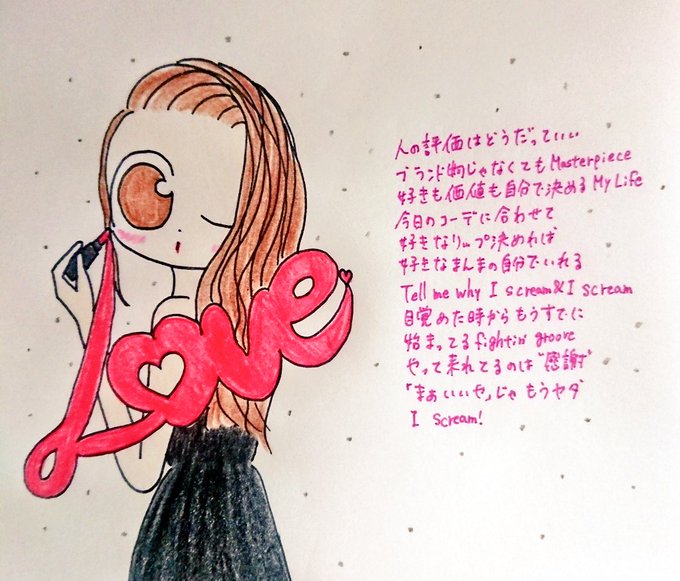 Love
人の評価はどうだっていい
ブランド物じゃなくてもMasterpiece
好きも価値も自分で決めるMy Life
今日のコーデに合わせて
好きなリップ決めれば
好きなまんまの自分でいれる
Tell me why I scream & I scream
目覚めた時からもうすでに
始まってるfightin' groove
やって来れてるのは"感謝"
「まぁいいや」じゃもうヤダ
I scream!